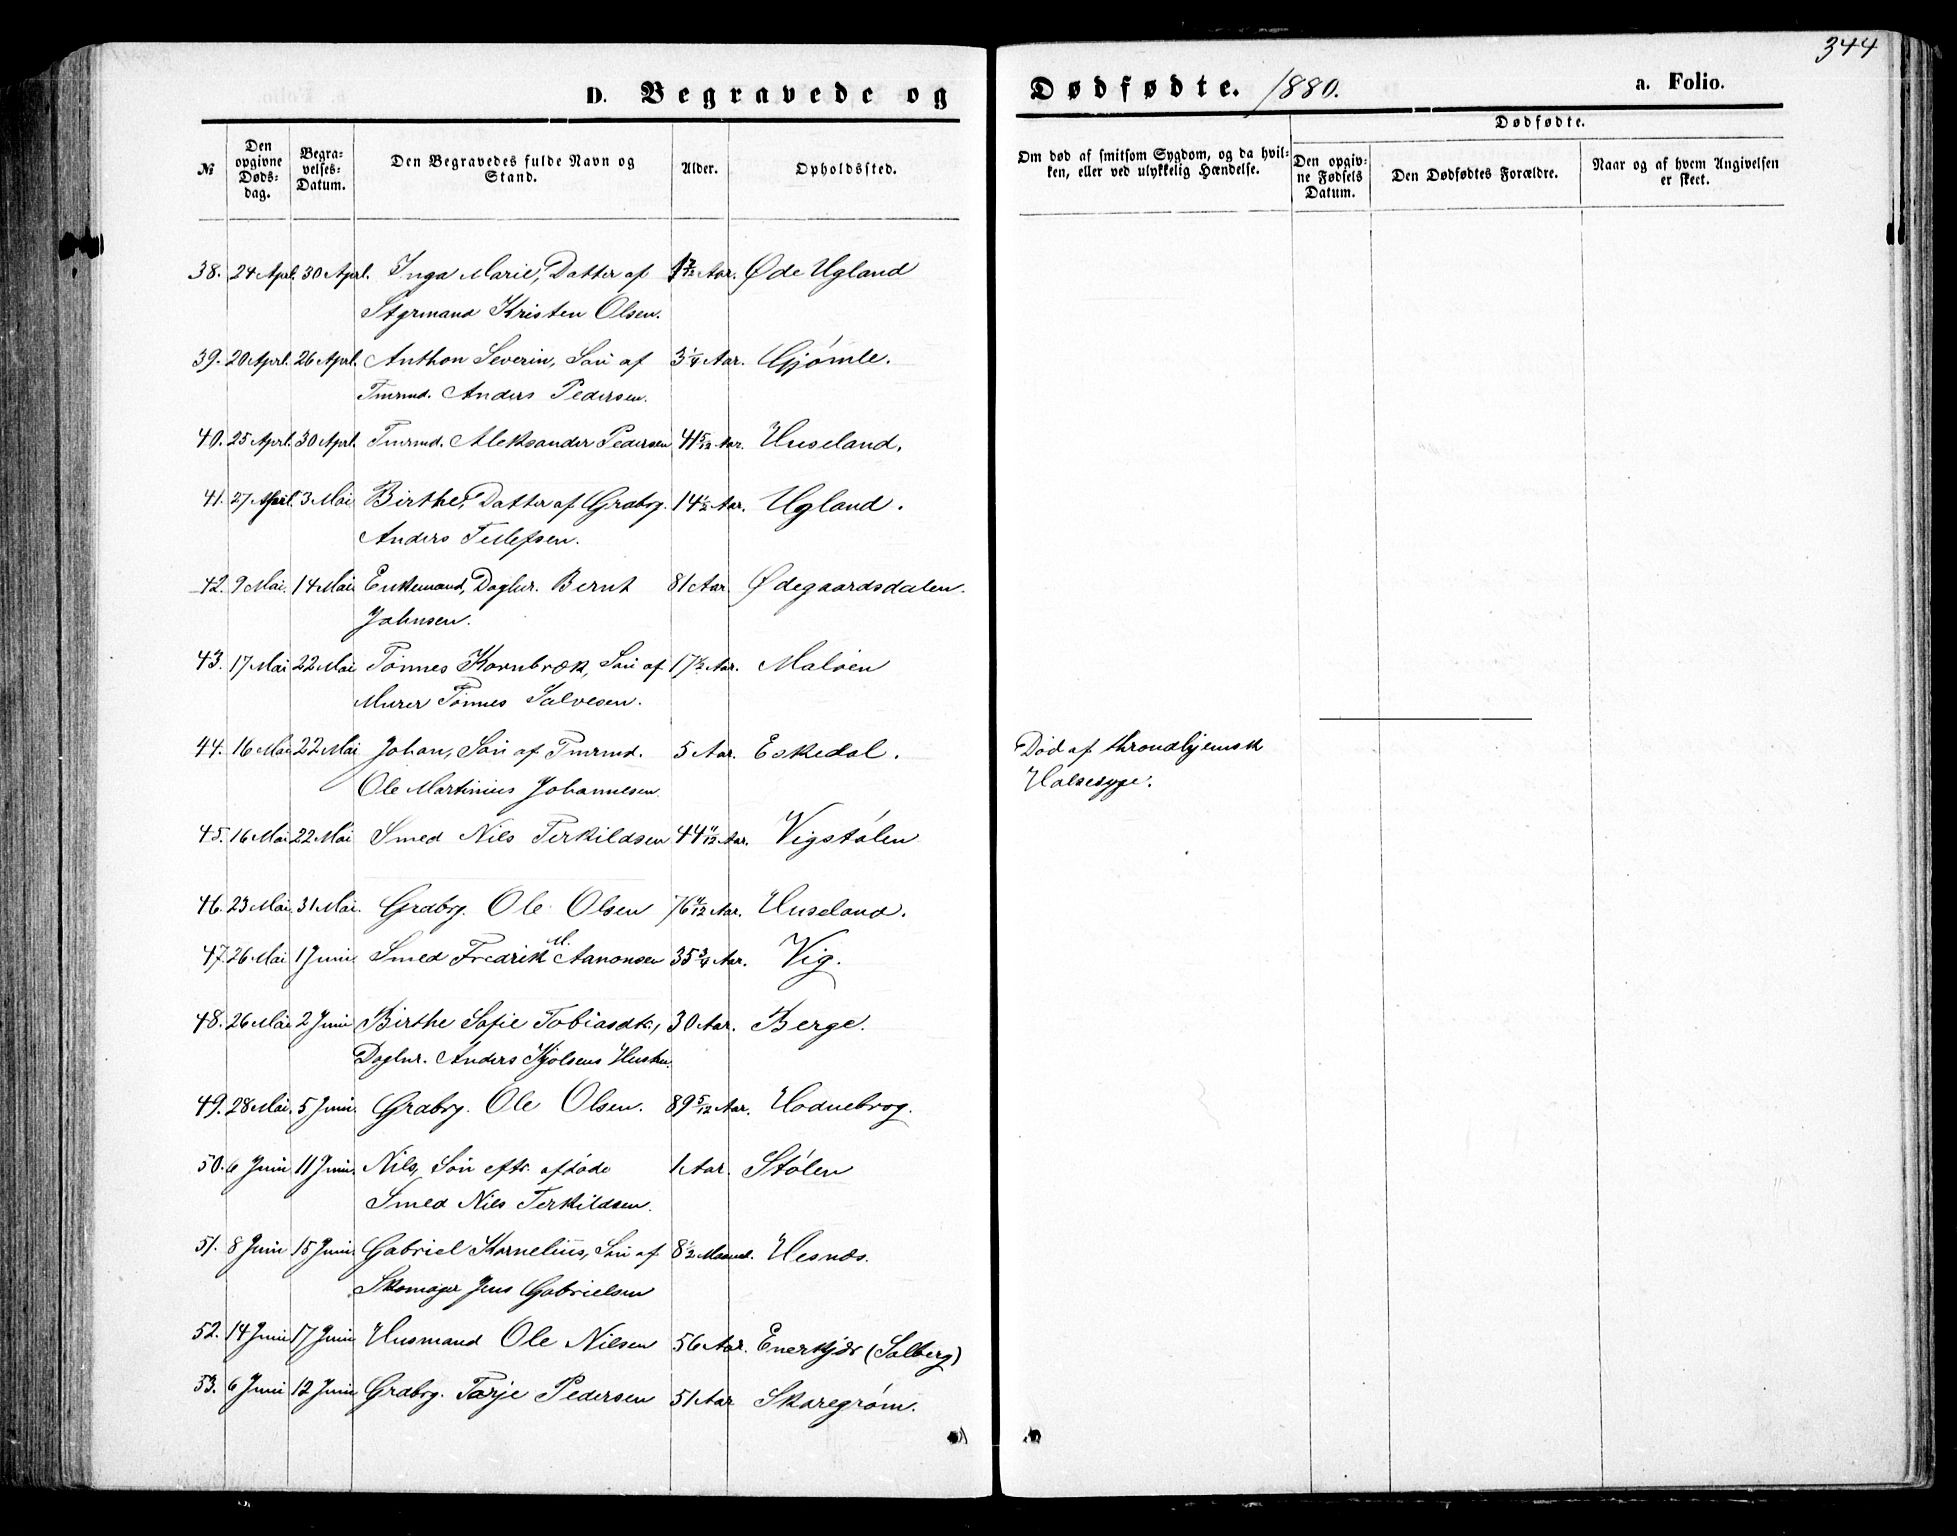 344
D. Begravede og Dødfødte. 1880. a. Folio.
№ Den opgivne Døds-dag. Begra-velses-Datum. Den Begravedes fulde Navn og Stand. Alder. Opholdssted. Om død af smitsom Sygdom, og da hvil-ken, eller ved ulykkelig Hændelse. Dødfødte. Den opgiv-ne Fødsels Datum. Den Dødfødtes Forældre. Naar og af hvem Angivelsen er skeet.
38. 24 Apl. 30 Apl. Inga Marie, Datter af Aar. Øde Ugland
Styrmand Kristen Olsen.
39. 20 Apl. 26 Apl. Anthon Severin, Søn af 3 1/4 Aar. Gjømle.
Tmrmd. Anders Pedersen.
40. 25 Apl. 30 Apl. Tmrmd. Aleksander Pedersen 41 5/12 Aar. Huseland.
41. 27 April. 3 Mai Birthe, Datter af Grdbrg. 14 1/2 Aar. Ugland.
Anders Tellefsen.
42. 9 Mai. 14 Mai Enkemand, Daglnr. Bernt 81 Aar. Ødegaardsdalen.
Johnsen.
43. 17 Mai 22 Mai Tønnes Kornbræk, Søn af 17 1/2 Aar. Maløen
Murer Tønnes Salvesen.
44. 16 Mai 22 Mai Johan, Søn af Tmrmd. 5 Aar. Eskedal. Død af throndhjemsk
Ole Martinius Johannesen Halssyge.
45. 16 Mai 22 Mai Smed Nils Terkildsen 44 11/12 Aar. Vigstølen
46. 23 Mai 31 Mai. Grdbrg. Ole Olsen 76 11/12 Aar. Huseland.
47. 26 Mai 1 Juni Smed Fredrik M. Aanonsen 35 3/4 Aar. Vig.
48. 26 Mai 2 Juni Birthe Sofie Tobiasdtr, 30 Aar. Berge.
Daglnr. Anders Kjølsens Hustru.
49. 28 Mai. 5 Juni. Grdbrg. Ole Olsen. 89 5/12 Aar. Hodnebrog.
50. 6 Juni 11 Juni. Nils, Søn eftr. afdøde 1 Aar. Stølen
Smed Nils Terkildsen.
51. 8 Juni 15 Juni. Gabriel Kornelius, Søn af 8 1/2 Maaned. Hesnæs.
Skomager Jens Gabrielsen
52. 14 Juni 17 Juni Husmand Ole Nilsen 56 Aar. Enerkjær (Salberg)
53. 6 Juni 12 Juni Grdbrg. Tarje Pedersen 51 Aar Skaregrøm.